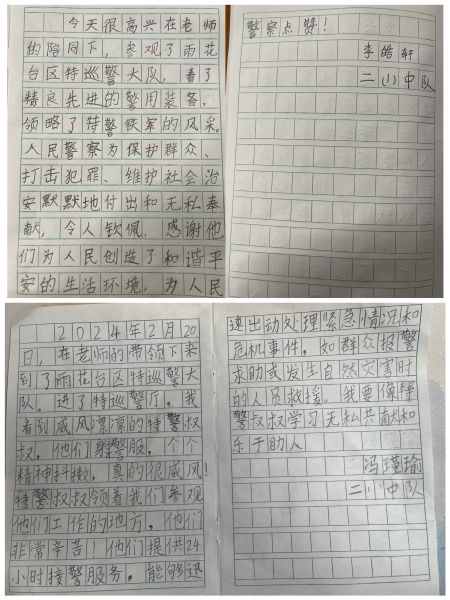 今天很高兴在老师
的陪同下，参观了雨花
台区特巡警大队，看了
精良先进的警用装备，
领略了特警铁军的风采。
人民警察为保护群众、
打击犯罪、维护社会治
安默默地付出和无私奉
献，令人钦佩，感谢他
们为人民创造了和谐平
安的生活环境，为人民
警察点赞！
李皓轩
二（1）中队
2024年2月20
日，在老师的带领下来
到了雨花台区特巡警大
队。进了特巡警厅。我
看到威风凛凛的特警叔
叔。他们身警服，个个
精神抖擞，真的很威风！
特警叔叔领着我们参观
他们工作的地方。他们
非常辛苦！他们提供24
小时接警服务。能够迅
速出动处理紧急情况和
危机事件。如群众报警
求助或发生自然灾害时
的人员救援。我要像特
警叔叔学习无私共献和
乐于助人
冯瑾瑜
二（1）中队